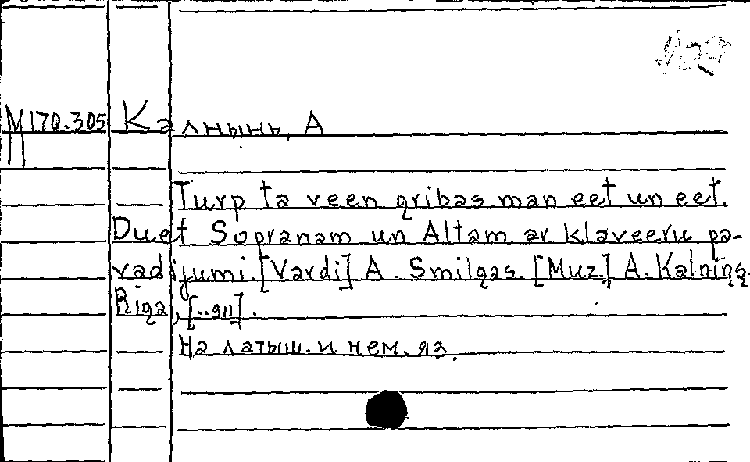 М170.305 Калнынь, А
Turp ta veen gribas man eet un eet.
Duet Sopranam un Altam ar klaveeru pa-
vadijumi. [Vardi] A. Smilgas. [Muz.] A. Kalning.
Riga,
На латыш. и нем. яз.